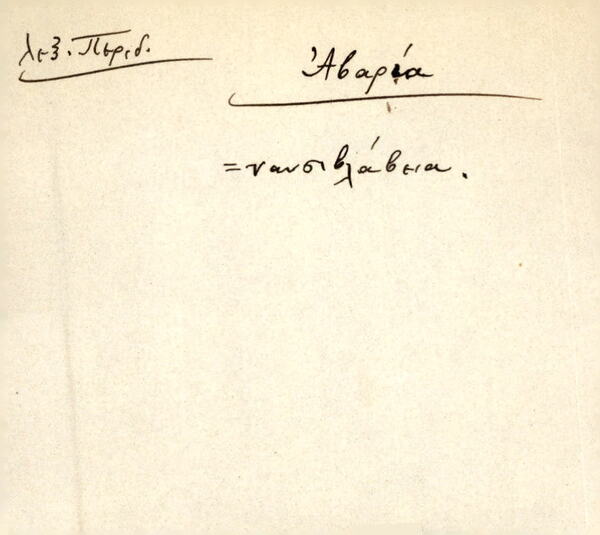 Λεξ. Περιδ.
Ἀβαρία
= ναυσιβλάβεια.